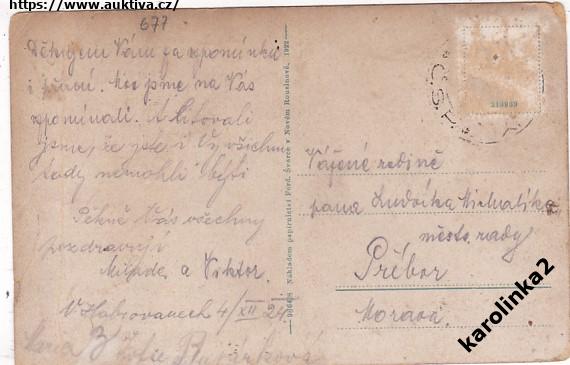 https://www.auktiva.cz/
677
Děkujem Vám za vzpomínku
i přání. Moc jsme na Vás
vzpomínali. A litovali
jsme, že jste i Vy všichni
tady nemohli býti
Pěkně Vás všechny
pozdravují
Milada a Viktor.
V Habrovanech 4/XII 24.
Žofie
99648 Nákladem papírnictví Ferd. Švarce v Novém Rousínově, 1922
Vážené rodině
pana Ludvíka Michalíka
městs. rady
Příbor
Morava.
karolinka2